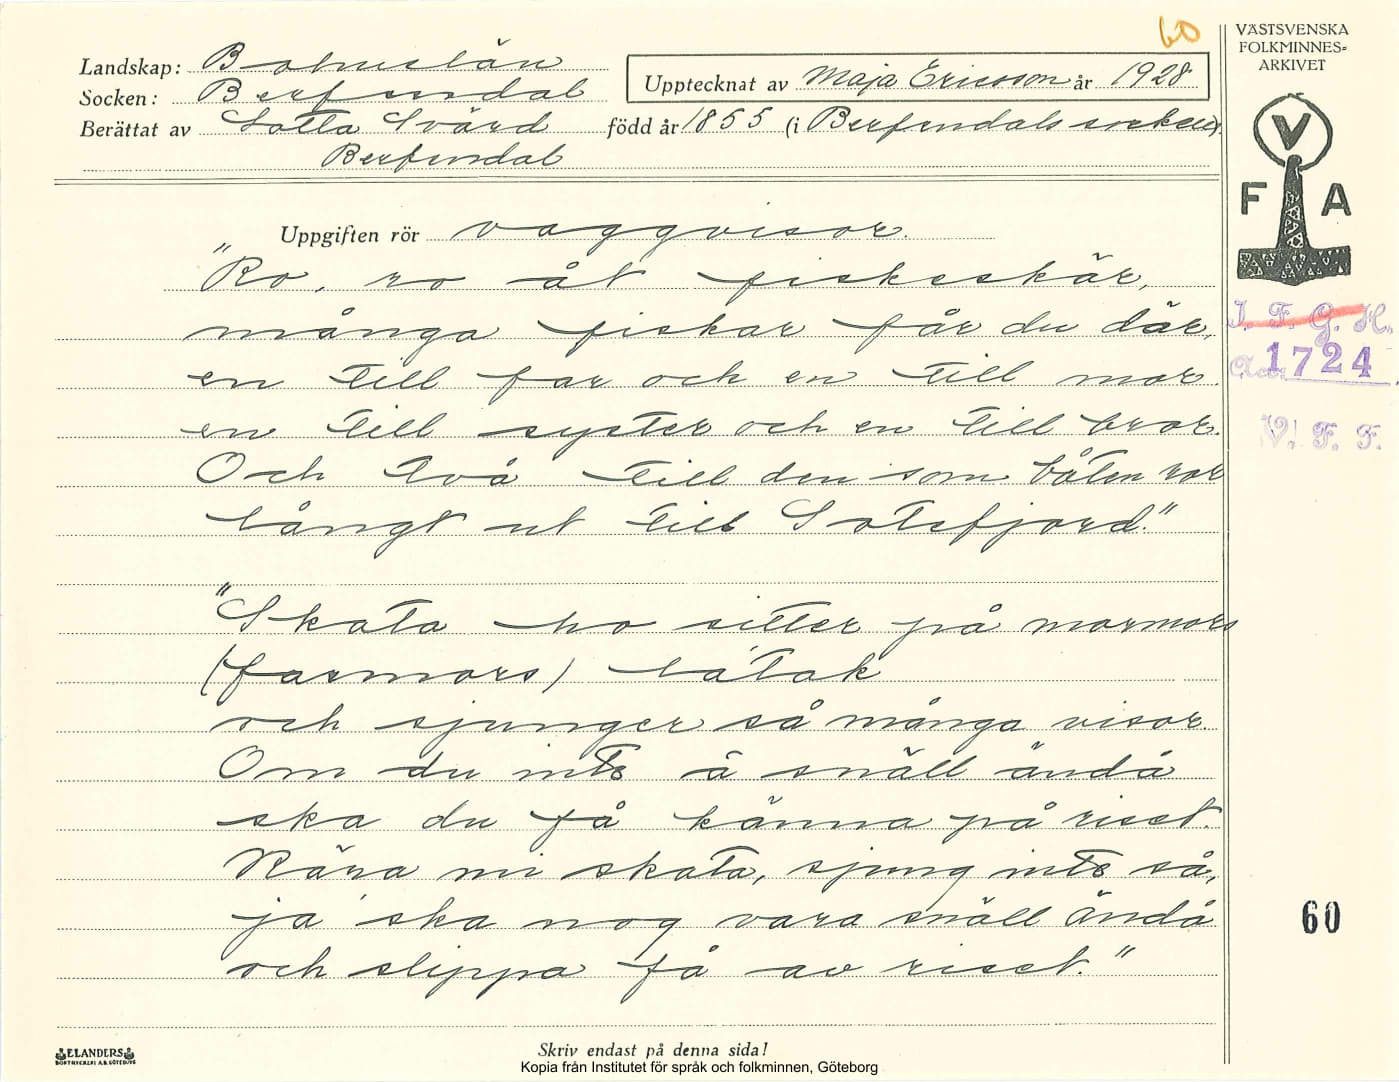 60
VÄSTSVENSKA
FOLKMINNES=
ARKIVET
Landskap: Bohuslän
Upptecknat av Maja Ericsson år 1928
Socken: Berfendal
Berättat av Lotta Svärd född år 1855 (i Berfendals socken).
Berfendal
V
F A
Uppgiften rör vaggvisor.
"Ro, ro åt fiskeskär,
många fiskar får du där,
en till far och en till mor.
en till syster och en till bror.
Och två till den som båten ror
långt ut till Sotefjord."
I. F. G. H.
Acc. 1724
V. F. F.
"Skata ho sitter på mormors
(farmors) låtak
och sjunger så många visor.
Om du inte ä snäll ändå
ska du få känna på riset.
Kära mi skata, sjung inte så,
ja' ska nog vara snäll ändå
och slippa få av riset."
60
Skriv endast på denna sida!
ELANDERS
BOKTRYCKERI A.B. GÖTEBORG
Kopia från Institutet för språk och folkminnen, Göteborg